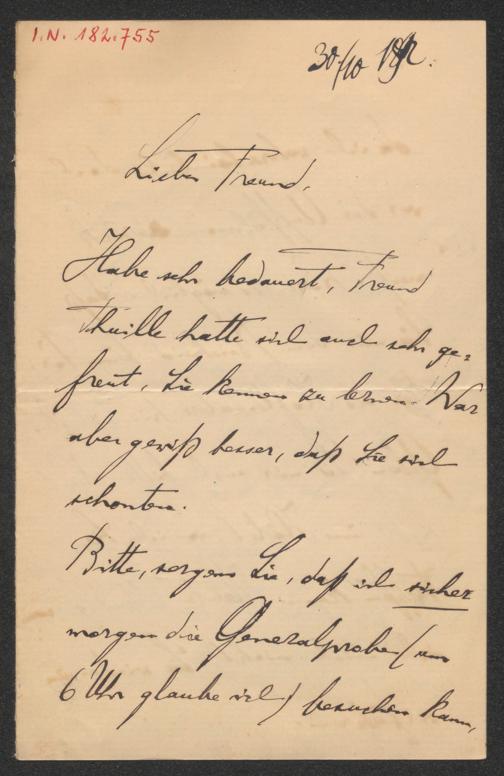 I.N. 182.755
30/10 92.
Lieber Freund,
Habe sehr bedauert, Freund
Thuille hatte sich auch sehr ge-
freut, Sie kennen zu lernen. War
aber gewiß besser, daß Sie sich
schonten.
Bitte, sorgen Sie, daß ich sicher
morgen die Generalprobe (um
6 Uhr glaube ich) besuchen kann,